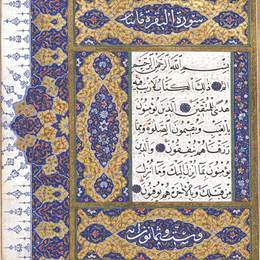 سورة البقرة مائتا
بسم الله الرحمن الرحيم
الم ذلك الكتاب لا ريب فيه
هدى للمتقين الذين يؤمنون
بالغيب ويقيمون الصلوة ومما
رزقناهم ينفقون والذين
يؤمنون بما انزل اليك وما انزل من
قبلك وبالاخرة هم يوقنون
وست وثمانون